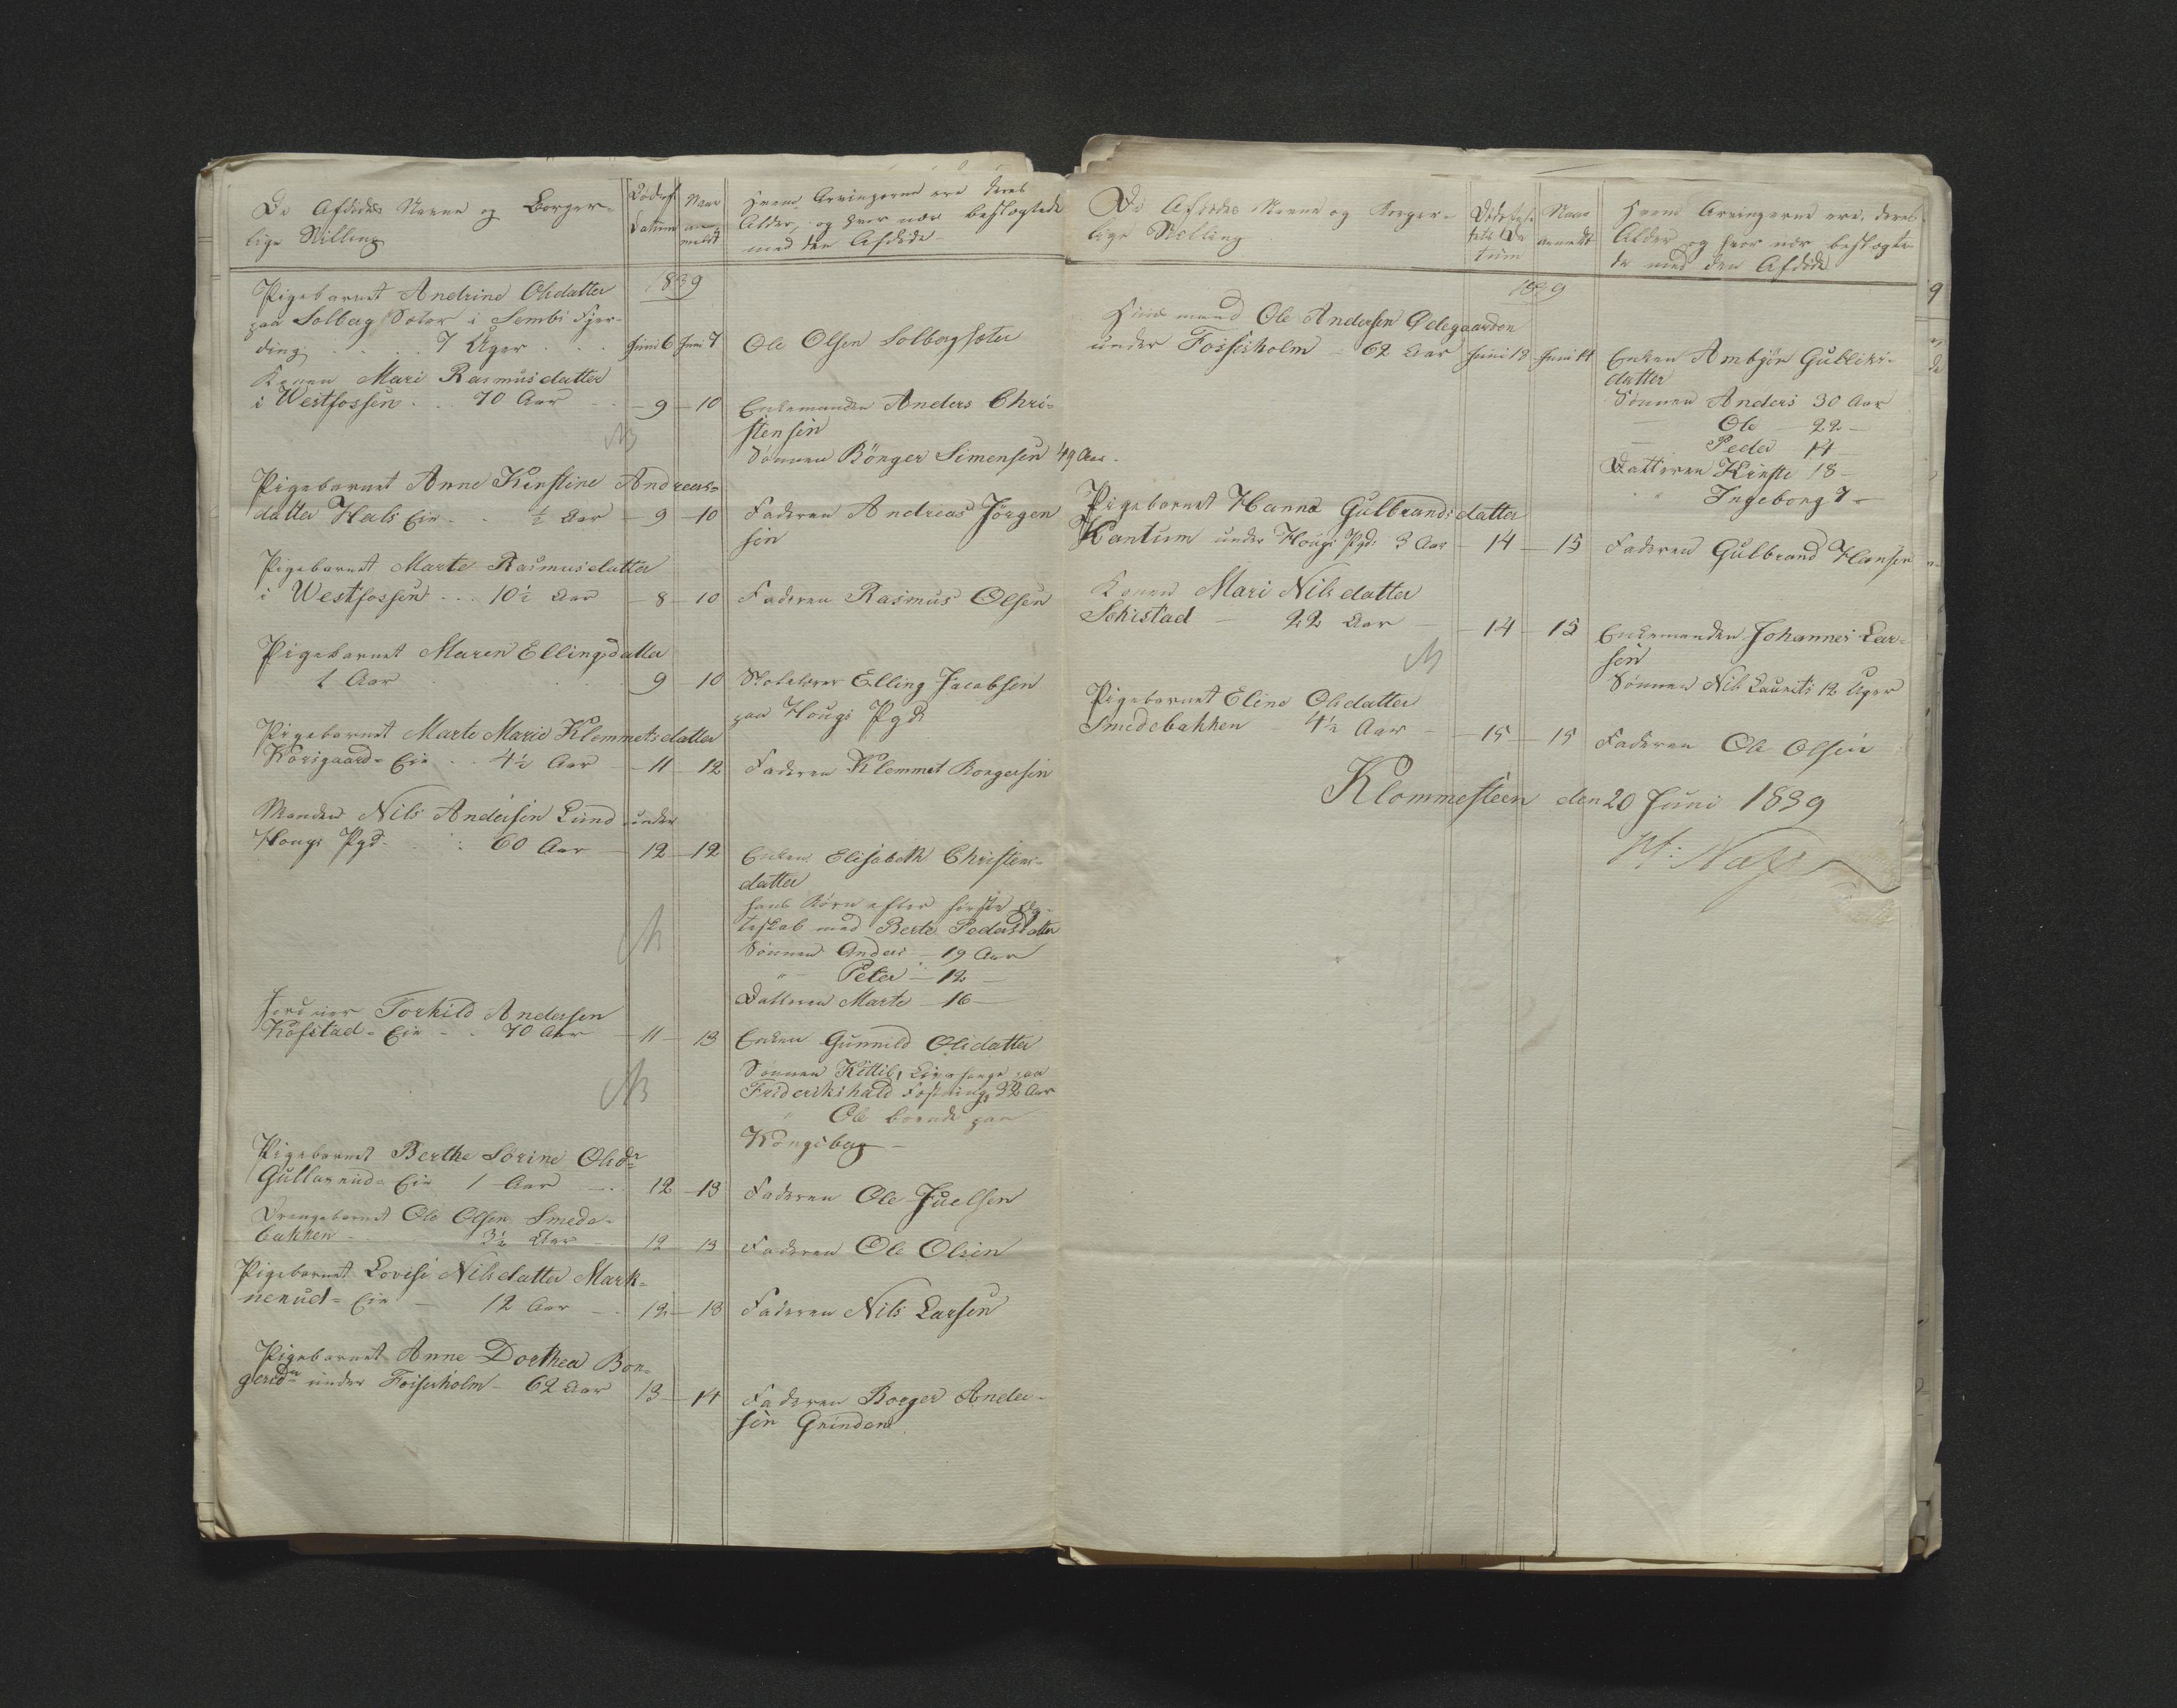 De Afdødes Navne og Borger-
lige Stilling
Dødsf.
Datum
Naar
an-
meldt
Hvem Arvingerne ere deres
Alder, og hvor nær beslægtede
med den Afdøde
1839
Pigebarnet Andrine Olsdatter
paa Solberg Sæter i Sembs Fjer-
ding . . . 7 Uger . . . Juni 6 Juni 7 Ole Olsen Solbergsæter
Konen Mari Rasmusdatter
i Westfossen . . 70 Aar - 9 - 10 Enkemanden Anders Chri-
stensen
NB
Sønnen Börger Simensen 49 Aar.
Pigebarnet Anne Kirstine Andreas-
datter Hals Eie . . ½ Aar - 9 - 10 Faderen Andreas Jörgen
sen
Pigebarnet Marte Rasmusdatter
i Westfossen . . . 10½ Aar - 8 - 10 Faderen Rasmus Olsen
Pigebarnet Maren Ellingsdatter
1 Aar 9 10 Skolelærer Elling Jacobsen
paa Hougs Pgd.
Pigebarnet Marte Marie Klemmetsdatter
Korsgaard= Eie . . 4½ Aar - 11 - 12 Faderen Klemmet Borgersen
Manden Nils Andersen Lund under
Hougs Pgd. 60 Aar - 12 - 12 Enken Elisabeth Christens-
datter
hans Børn efter første Æg-
teskab med Berte Pedersdatter
Sønnen Anders - 19 Aar
" Peter - 12 -
Datteren Marte - 16 -
Torkild Andersen
Kofstad= Eie . . 70 Aar - 11 - 13 Enken Gunnild Olsdatter
Sønnen Kittil, Livsfange paa
Friderikshald Fæstning, 32 Aar
NB
Ole boende paa
Kongsberg -
Pigebarnet Berthe Sörine Olsdr
Gullaserud= Eie 1 Aar - 12 - 13 Faderen Ole Juelsen
Drengebarnet Ole Olsen Smede-
bakken - 3½ Aar 12 - 13 Faderen Ole Olsen
Pigebarnet Lovise Nilsdatter Mark-
nerud= Eie - 12 Aar - 12 - 13 Faderen Nils Larsen
Pigebarnet Anne Dorthea Bor-
gersdr under Fossesholm - 62 Aar 13 - 14 Faderen Borger Ander-
sen Grinden
De Afdødes Navne og Borger-
lige Stilling
Dødsfal-
dets Da
tum
Naar
anmeldt
Hvem Arvingerne ere, deres
Alder og hvor nær beslægte-
de med den Afdøde
1839
Huusmand Ole Andersen Ødegaarden
under Fossesholm - 62 Aar Juni 12 Juni 14 Enken Ambjör Gulliks-
datter
Sønnen Anders 30 Aar
- Ole - 22 -
- Peder 14 -
Datteren Kirsti 18 -
" Ingeborg 7 -
Pigebarnet Hanna Gulbrandsdatter
Kantum under Hougs Pgd: 3 Aar - 14 - 15 Faderen Gulbrand Hansen
Konen Mari Nilsdatter
Sekistad - 22 Aar - 14 - 15 Enkemanden Johannes Lar-
sen
Sønnen Nils Laurits 12 Uger
Pigebarnet Eline Olsdatter
Smedebakken 4½ Aar - 15 - 15 Faderen Ole Olsen
Klommesteen den 20 Juni 1839